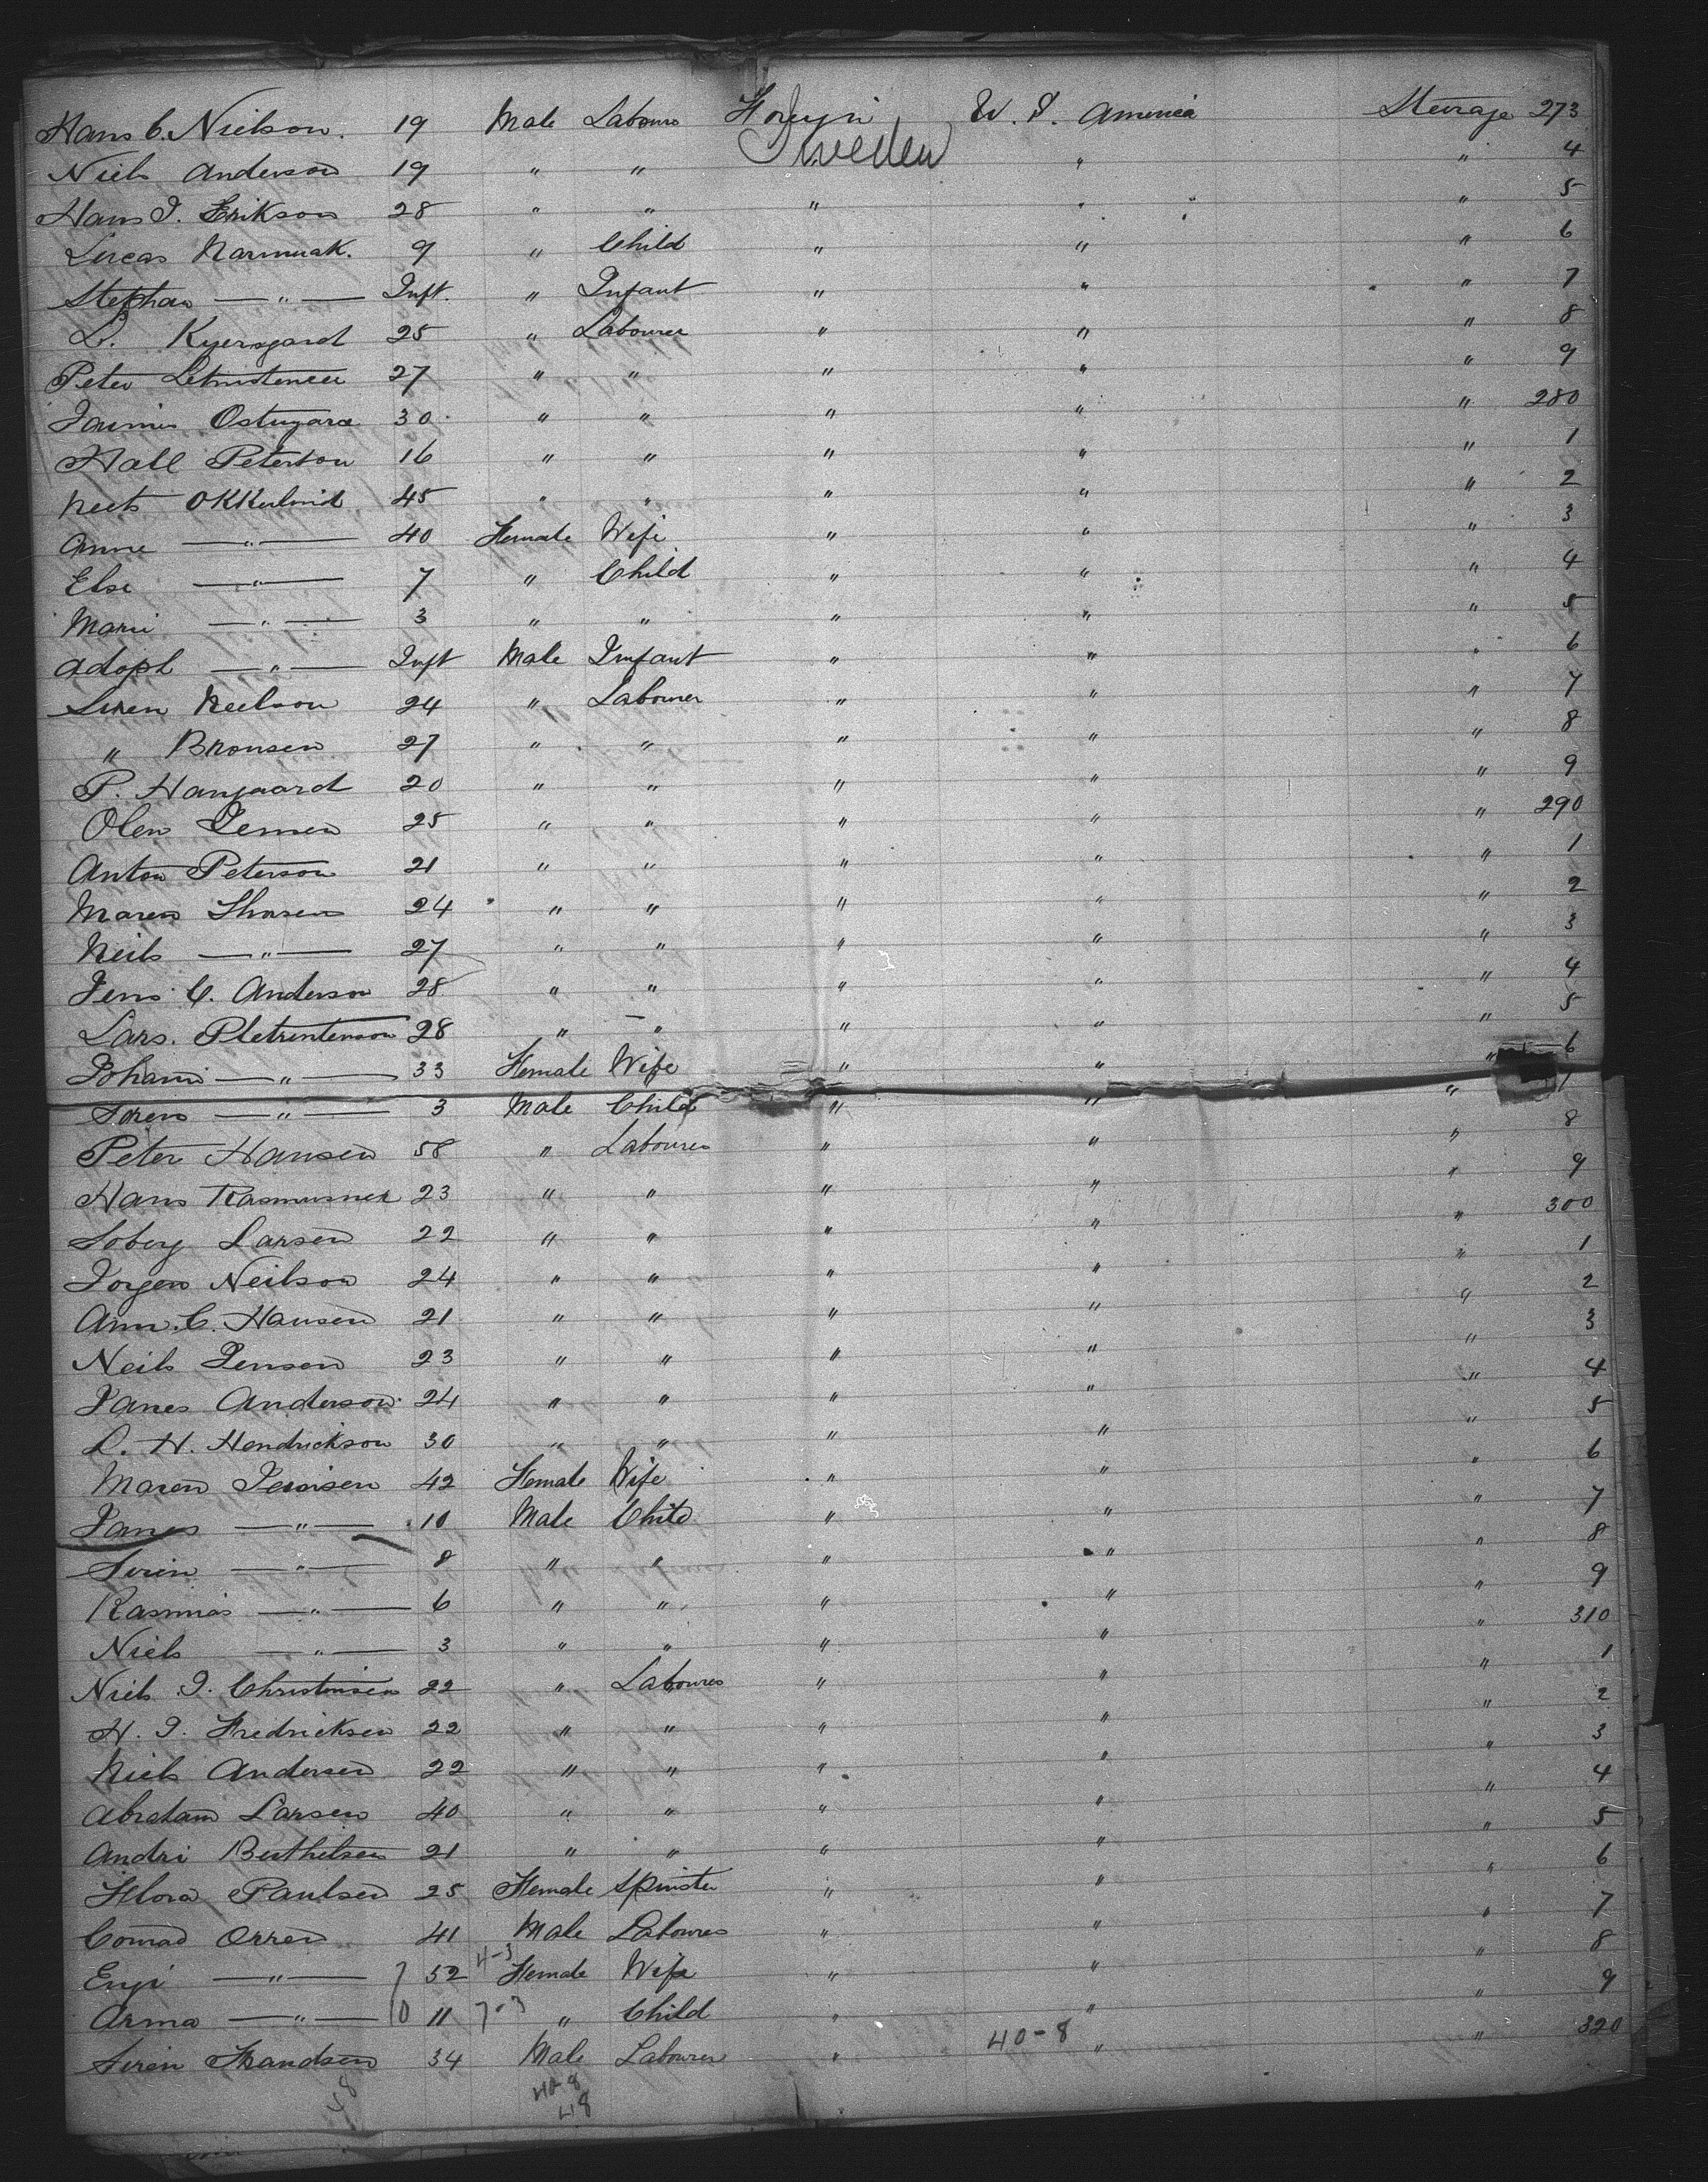 Hans C. Nielson. 19 Male Laboure Foreign U. S. America Steerage 273
Sweden
Niels Anderson 19 " " " " 4
Hans J. Erikson 28 " " " " " 5
Lucas Narmuak. 9 " Child " " " 6
Stephan — " — Inft. " Infant " " " 7
L. Kyersgard 25 " Labourer " " " 8
Peter 27 " " " " " 9
Ostugara 30 " " " " " 280
Hall Peterson 16 " " " " " 1
Neels 45 " " " " " 2
Anne — " — 40 Female Wife " " " 3
Else — " — 7 " Child " " " 4
Marie — " — 3 " " " " " 5
Adoph — " — Inft Male Infant " " " 6
Suren Neelson 24 " Labourer " " " 7
" Bronsen 27 " " " " " 8
P. Hangaard 20 " " " " " 9
Olen Jensen 25 " " " " " 290
Anton Peterson 21 " " " " " 1
Maren 24 " " " " " 2
Neils — " — 27 " " " " " 3
Jens C. Anderson 28 " " " " " 4
Lars. 28 " " " " " 5
Johann — " — 33 Female Wife " " " 6
Soren — " — 3 Male Child " " "
Peter Hansen 58 " Labourer " " " 8
Hans Rasmusner 23 " " " " " 9
Soberg Larsen 22 " " " " " 300
Jorgen Neilson 24 " " " " " 1
Ann. C. Hansen 21 " " " " " 2
Neils Jenson 23 " " " " " 3
Janes Anderson 24 " " " " " 4
L. H. Hendrickson 30 " " " " " 5
Maren 42 Female Wife " " " 6
Janes — " — 10 Male Child " " " 7
Serin — " — 8 " " " " " 8
Rasmus — " — 6 " " " " " 9
Niels — " — 3 " " " " " 310
Niels J. Christensen 22 " Laboures " " " 1
H. J. Fredricksen 22 " " " " " 2
Niels Andersen 22 " " " " " 3
Abraham Larsen 40 " " " " " 4
Andri Berthelsen 21 " " " " " 5
Flora Paulsen 25 Female Spinster " " " 6
Conrad Orren 41 Male Laboures " " " 7
Engi — " — 7 52 4-3 Female Wife " " " 8
Arma — " — 10 11 7-3 " Child " " " 9
Serin Frandsen 34 Male Labourer " 40-8 " " 320
48 40-8
48